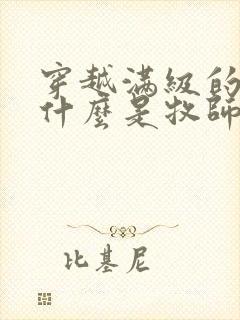 穿越滿級的
什麼是牧師
比基尼